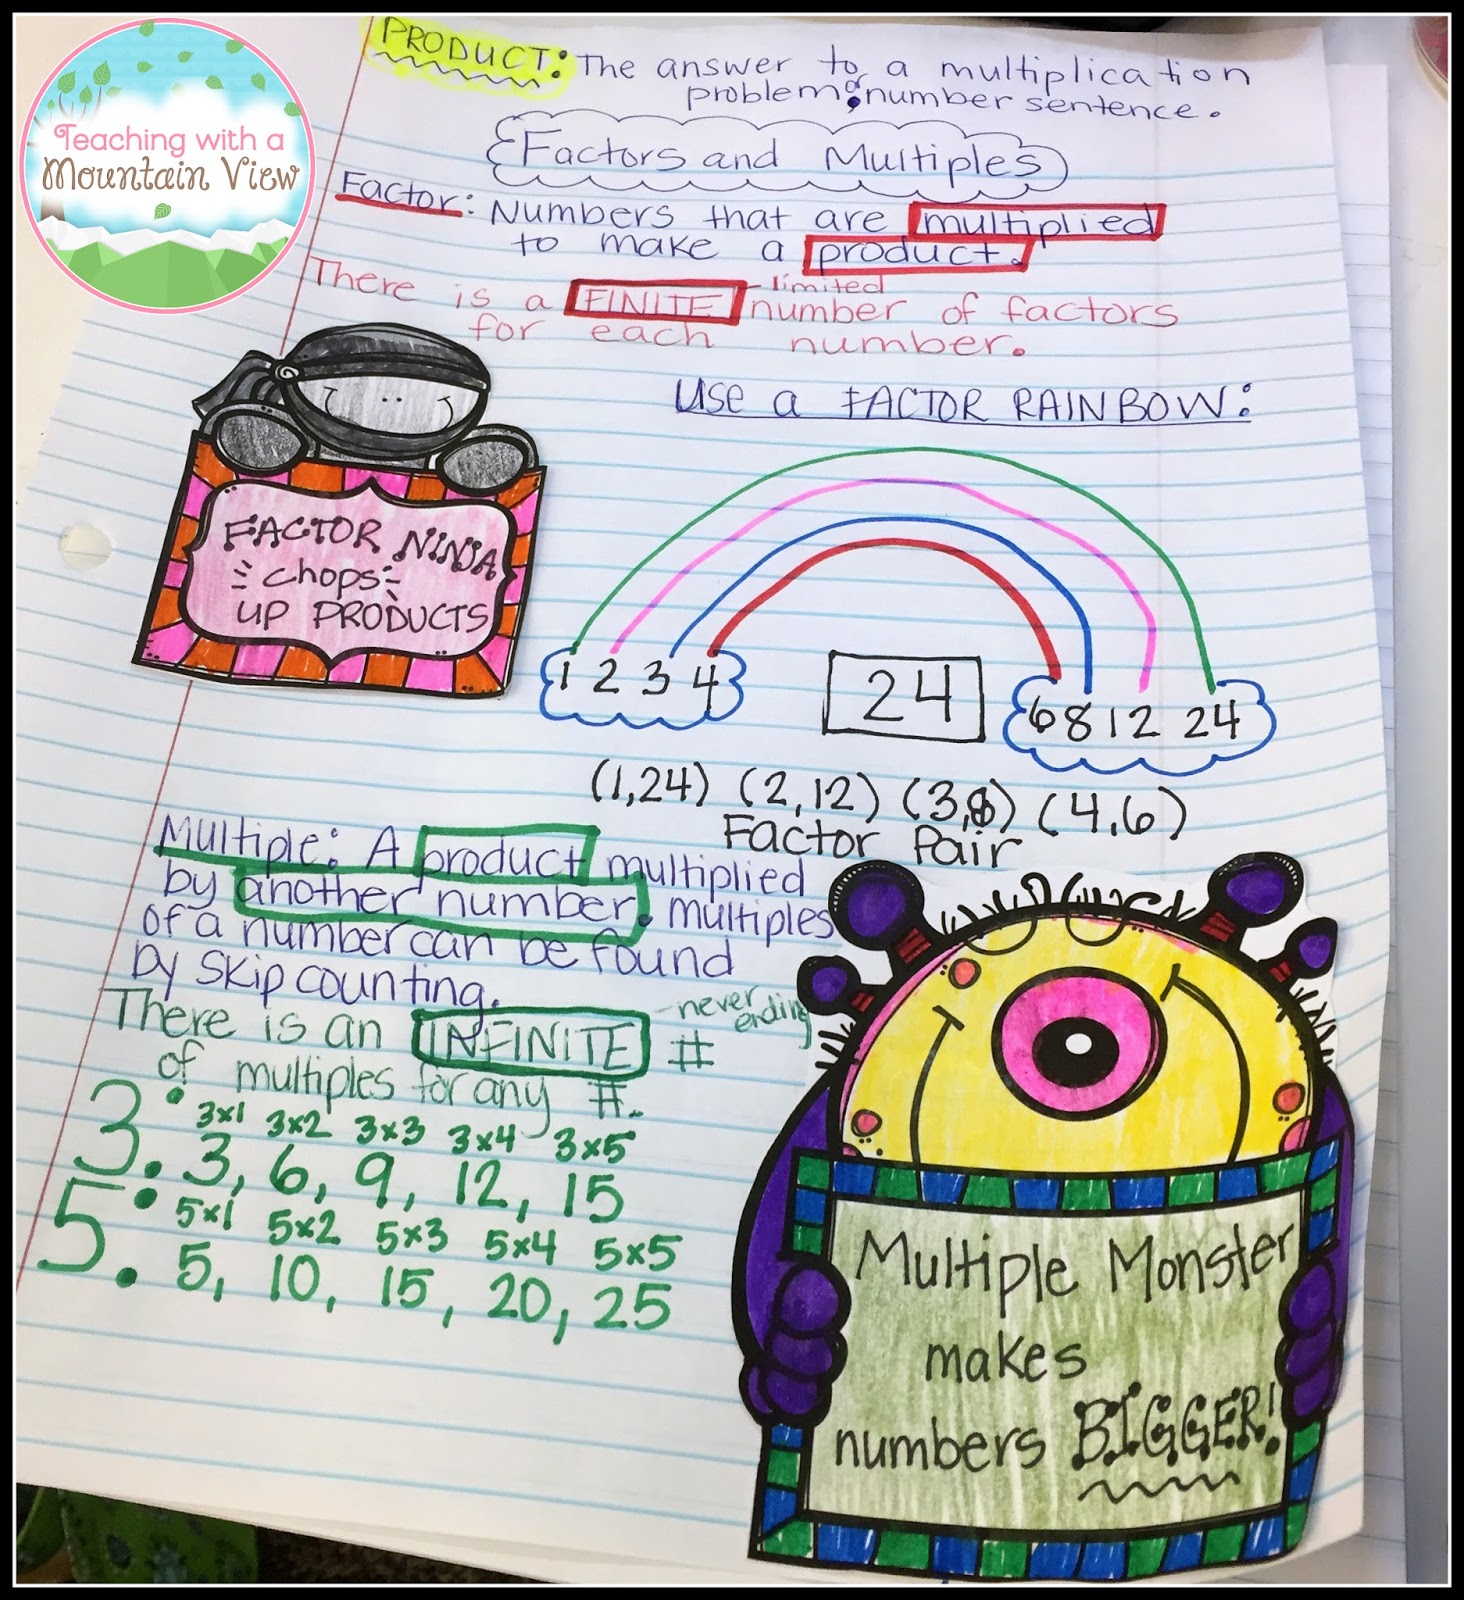 Teaching with a
Mountain View
PRODUCT: The answer to a multiplication
problem or number sentence.
Factors and Multiples
Factor: Numbers that are multiplied
to make a product.
There is a FINITE - limited number of factors
for each number.
FACTOR NINJA
chops
UP PRODUCTS
Use a FACTOR RAINBOW:
1 2 3 4 24 6 8 12 24
(1,24) (2,12) (3,8) (4,6)
Factor Pair
Multiple: A product multiplied
by another number. multiples
of a number can be found
by skip counting.
There is an INFINITE - never ending #
of multiples for any #.
3: 3x1 3x2 3x3 3x4 3x5
3, 6, 9, 12, 15
5: 5x1 5x2 5x3 5x4 5x5
5, 10, 15, 20, 25
Multiple Monster
makes
numbers BIGGER!